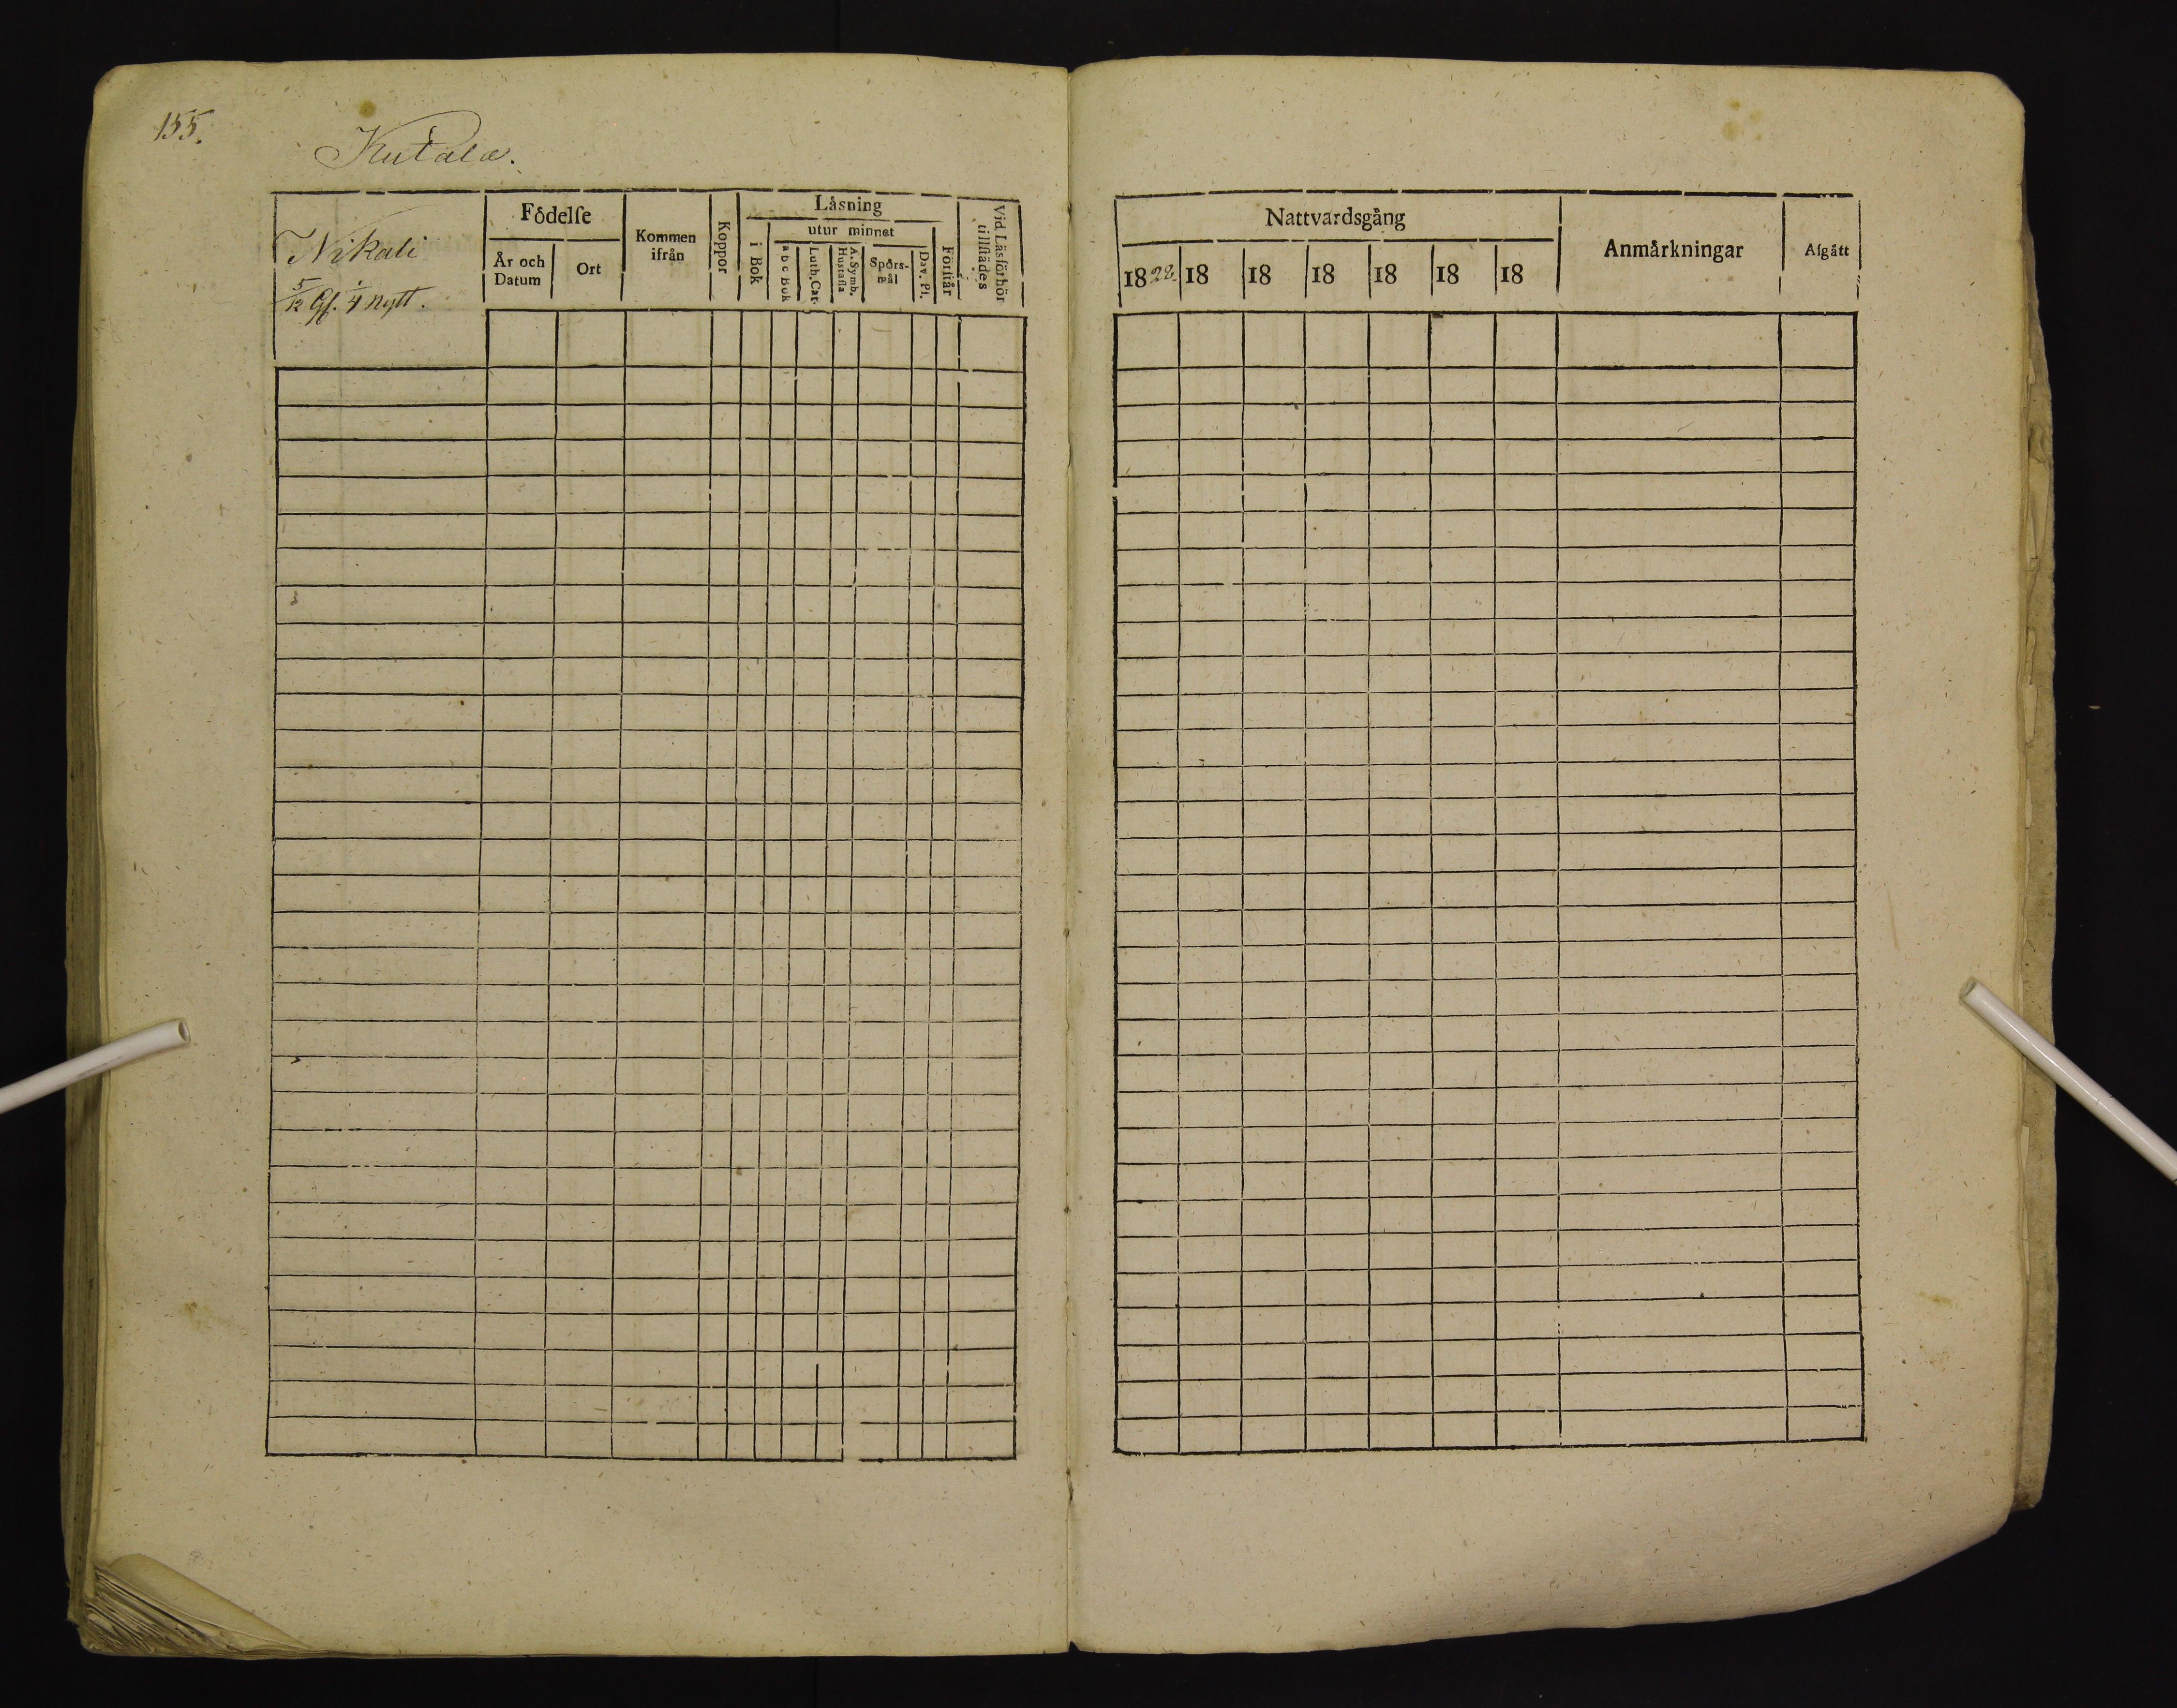 155.
Kutala.
Nikali
5/12 Gf. 1/4 nytt.
Födelse
År och Datum
Ort
Kommen ifrån
Koppor
Låsning
i Bok
utur minnet
a b c Bok
Luth. Cat.
A. Symb. Hustafla
Spörsmål
Dav. Ps.
Förstår
Vid Läsförhör tillstädes
Nattvardsgång
1828 18 18 18 18 18 18
Anmärkningar
Afgått